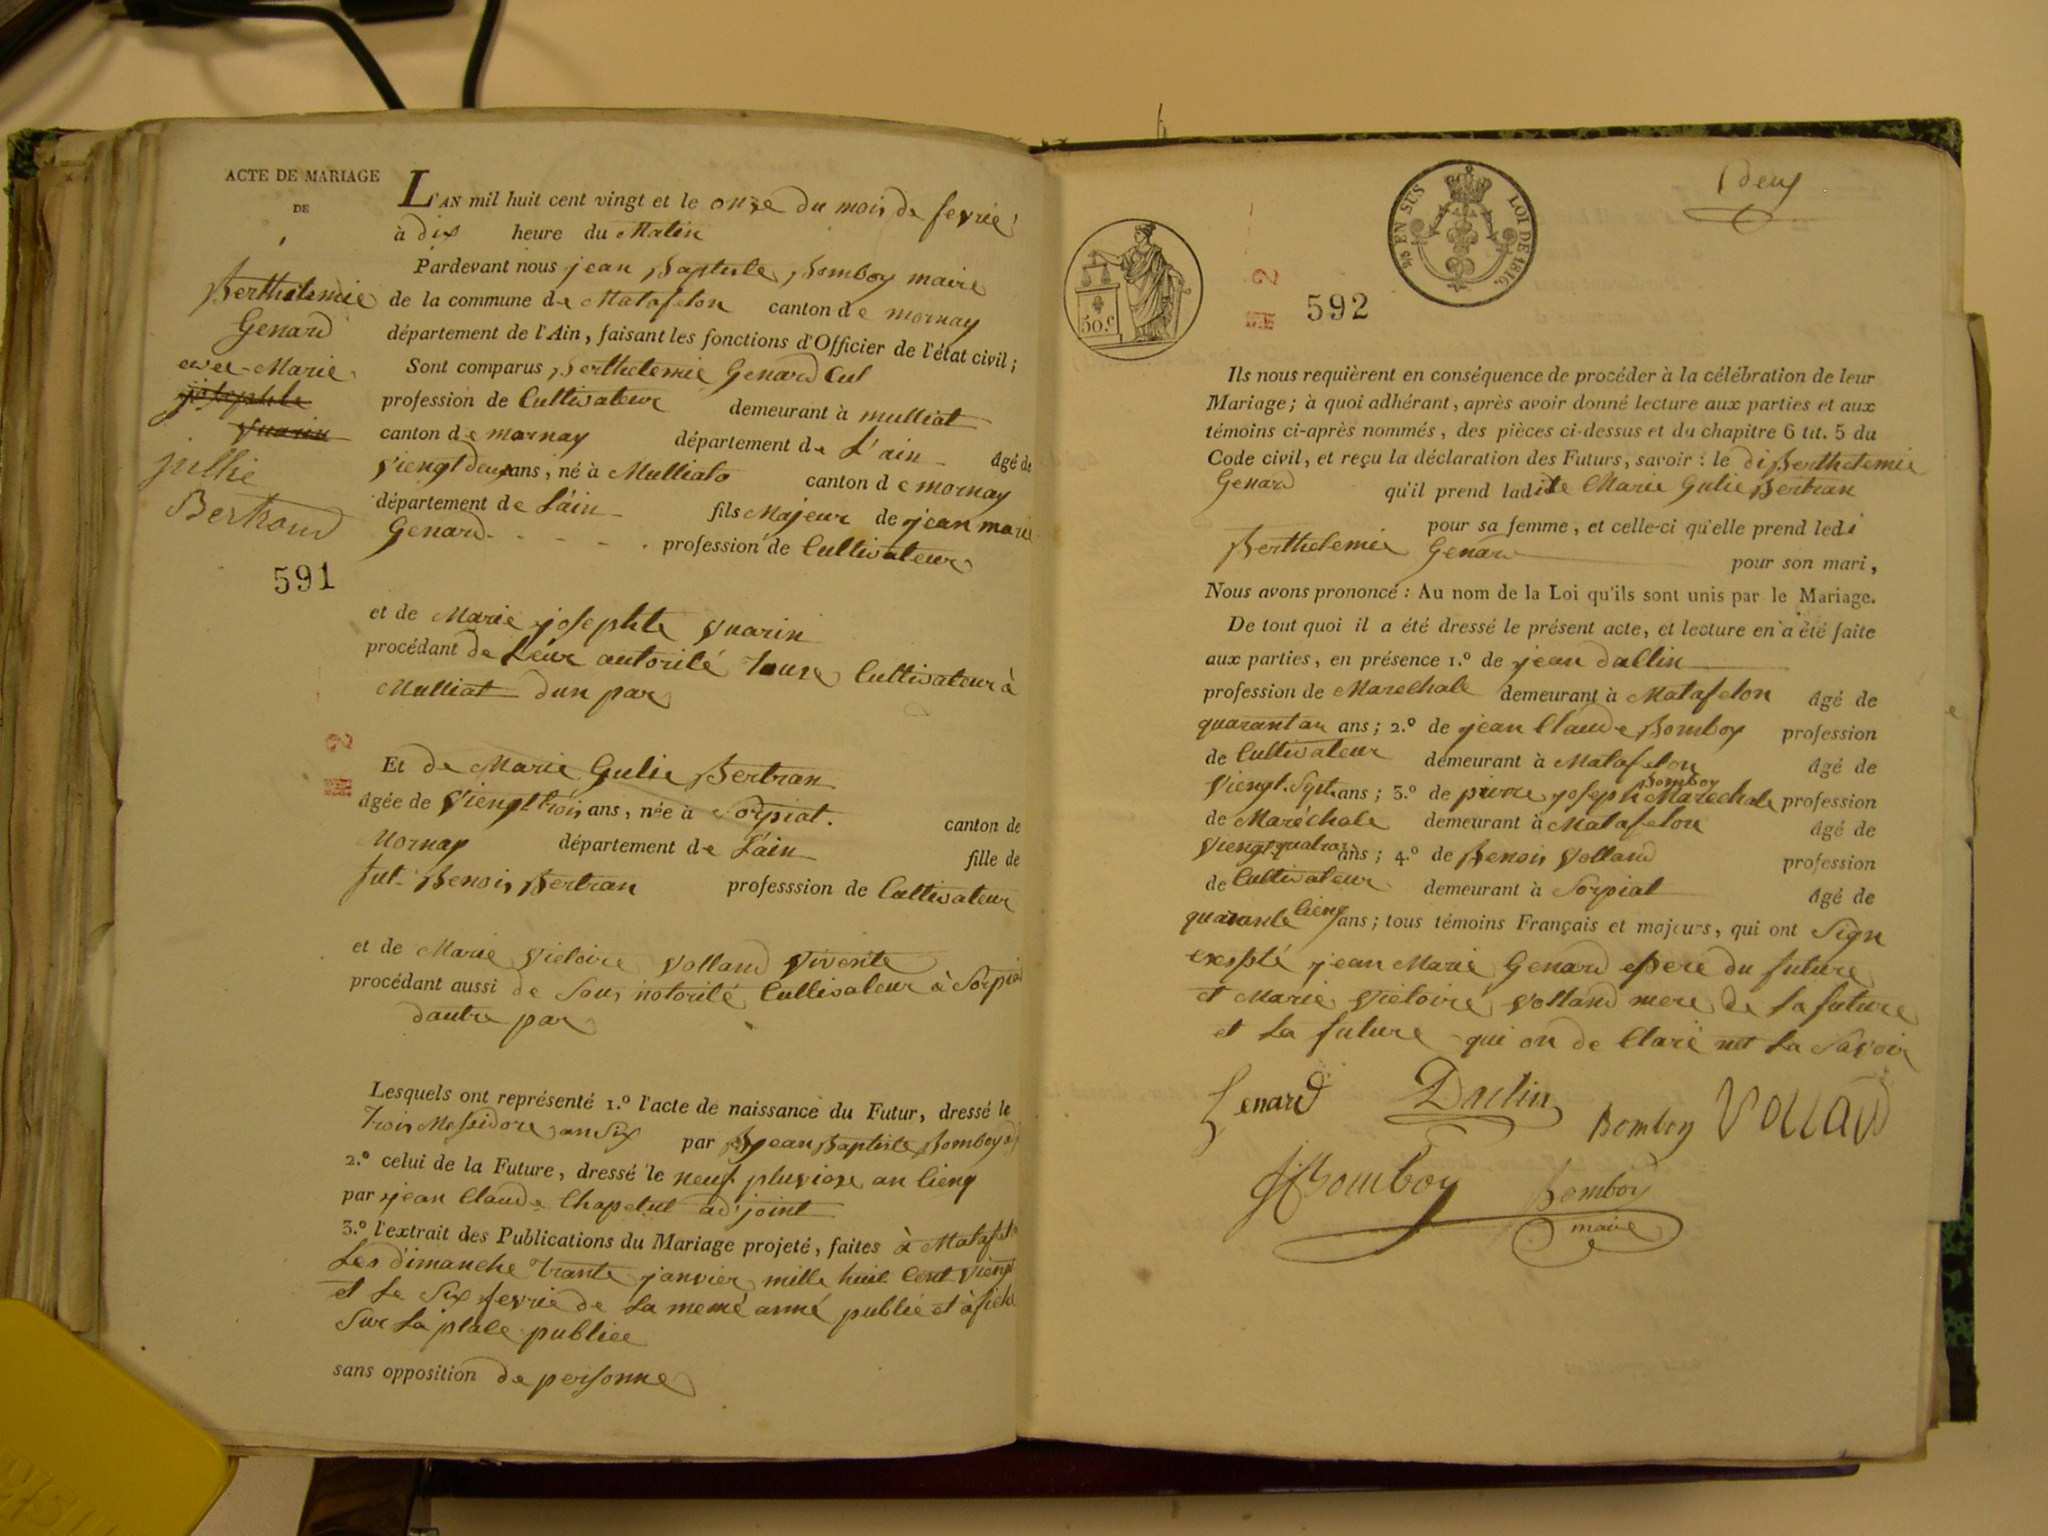 ACTE DE MARIAGE
DE
Berthelemie
Genard
avec Marie
josephte
Vuarin
jullie
Bertrand
591
L'AN mil huit cent vingt et le onze du mois de fevrie
à dix heure du Matin
Pardevant nous jean Baptiste Bomboy maire
de la commune de Matafelon canton de mornay
département de l'Ain, faisant les fonctions d'Officier de l'état civil;
Sont comparus Berthelemie Genard Cul
profession de Cultivateur demeurant à mulliat
canton de mornay département de L'ain âgé de
Viengt deux ans, né à Mulliato canton de mornay
département de L'ain fils Majeur de jean marie
Genard profession de Cultivateur
et de Marie josephte Vuarin
procédant de Leur autorité tous Cultivateur à
Mulliat dun par
Et de Marie Gulie Bertran
âgée de Viengt trois ans, née à Sorpiat. canton de
Mornay département de L'ain fille de
fut Benois Bertran professsion de Cultivateur
et de Marie Victoire Volland Vivente
procédant aussi de Sous notorité Cultivateur à Sorpiat
dautre par
Lesquels ont représenté 1.º l'acte de naissance du Futur, dressé le
trois Messidore an Six par jean Baptiste Bomboy
2.º celui de la Future, dressé le neuf pluviose an Cienq
par jean Claude Chapelut adjoint
3.º l'extrait des Publications du Mariage projeté, faites à Matafel
Les dimanche trante janvier mille huit Cent Viengt
et Le Six fevrie de La meme anné publié et afiche
Sur La place publice
sans opposition de personne
deux
45 EN SUS LOI DE 1816.
50.c
592
Ils nous requièrent en conséquence de procéder à la célébration de leur
Mariage; à quoi adhérant, après avoir donné lecture aux parties et aux
témoins ci-après nommés, des pièces ci-dessus et du chapitre 6 tit. 5 du
Code civil, et reçu la déclaration des Futurs, savoir : le di Berthelemie
Genard qu'il prend ladite Marie Gulie Bertran
pour sa femme, et celle-ci qu'elle prend ledi
Berthelemie Genard pour son mari,
Nous avons prononcé : Au nom de la Loi qu'ils sont unis par le Mariage.
De tout quoi il a été dressé le présent acte, et lecture en a été faite
aux parties, en présence 1.º de jean dallin
profession de Marechale demeurant à Matafelon âgé de
quarant an ans; 2.º de jean Claude Bomboy profession
de Cultivateur demeurant à Matafelon âgé de
Viengt Sept ans; 3.º de pierre joseph Bomboy Marechale profession
de Maréchale demeurant à Matafelon âgé de
Viengt quatre ans; 4.º de Benois Volland profession
de Cultivateur demeurant à Sorpiat âgé de
quarante Cienq ans; tous témoins Français et majeurs, qui ont Sign
exsplé jean Marie Genard pere du future
et Marie Victoire Volland mere de La future
et La future qui on de Claré net La Savoir
Genard Dallin Bomboy Volland
Bomboy Bomboy
maire